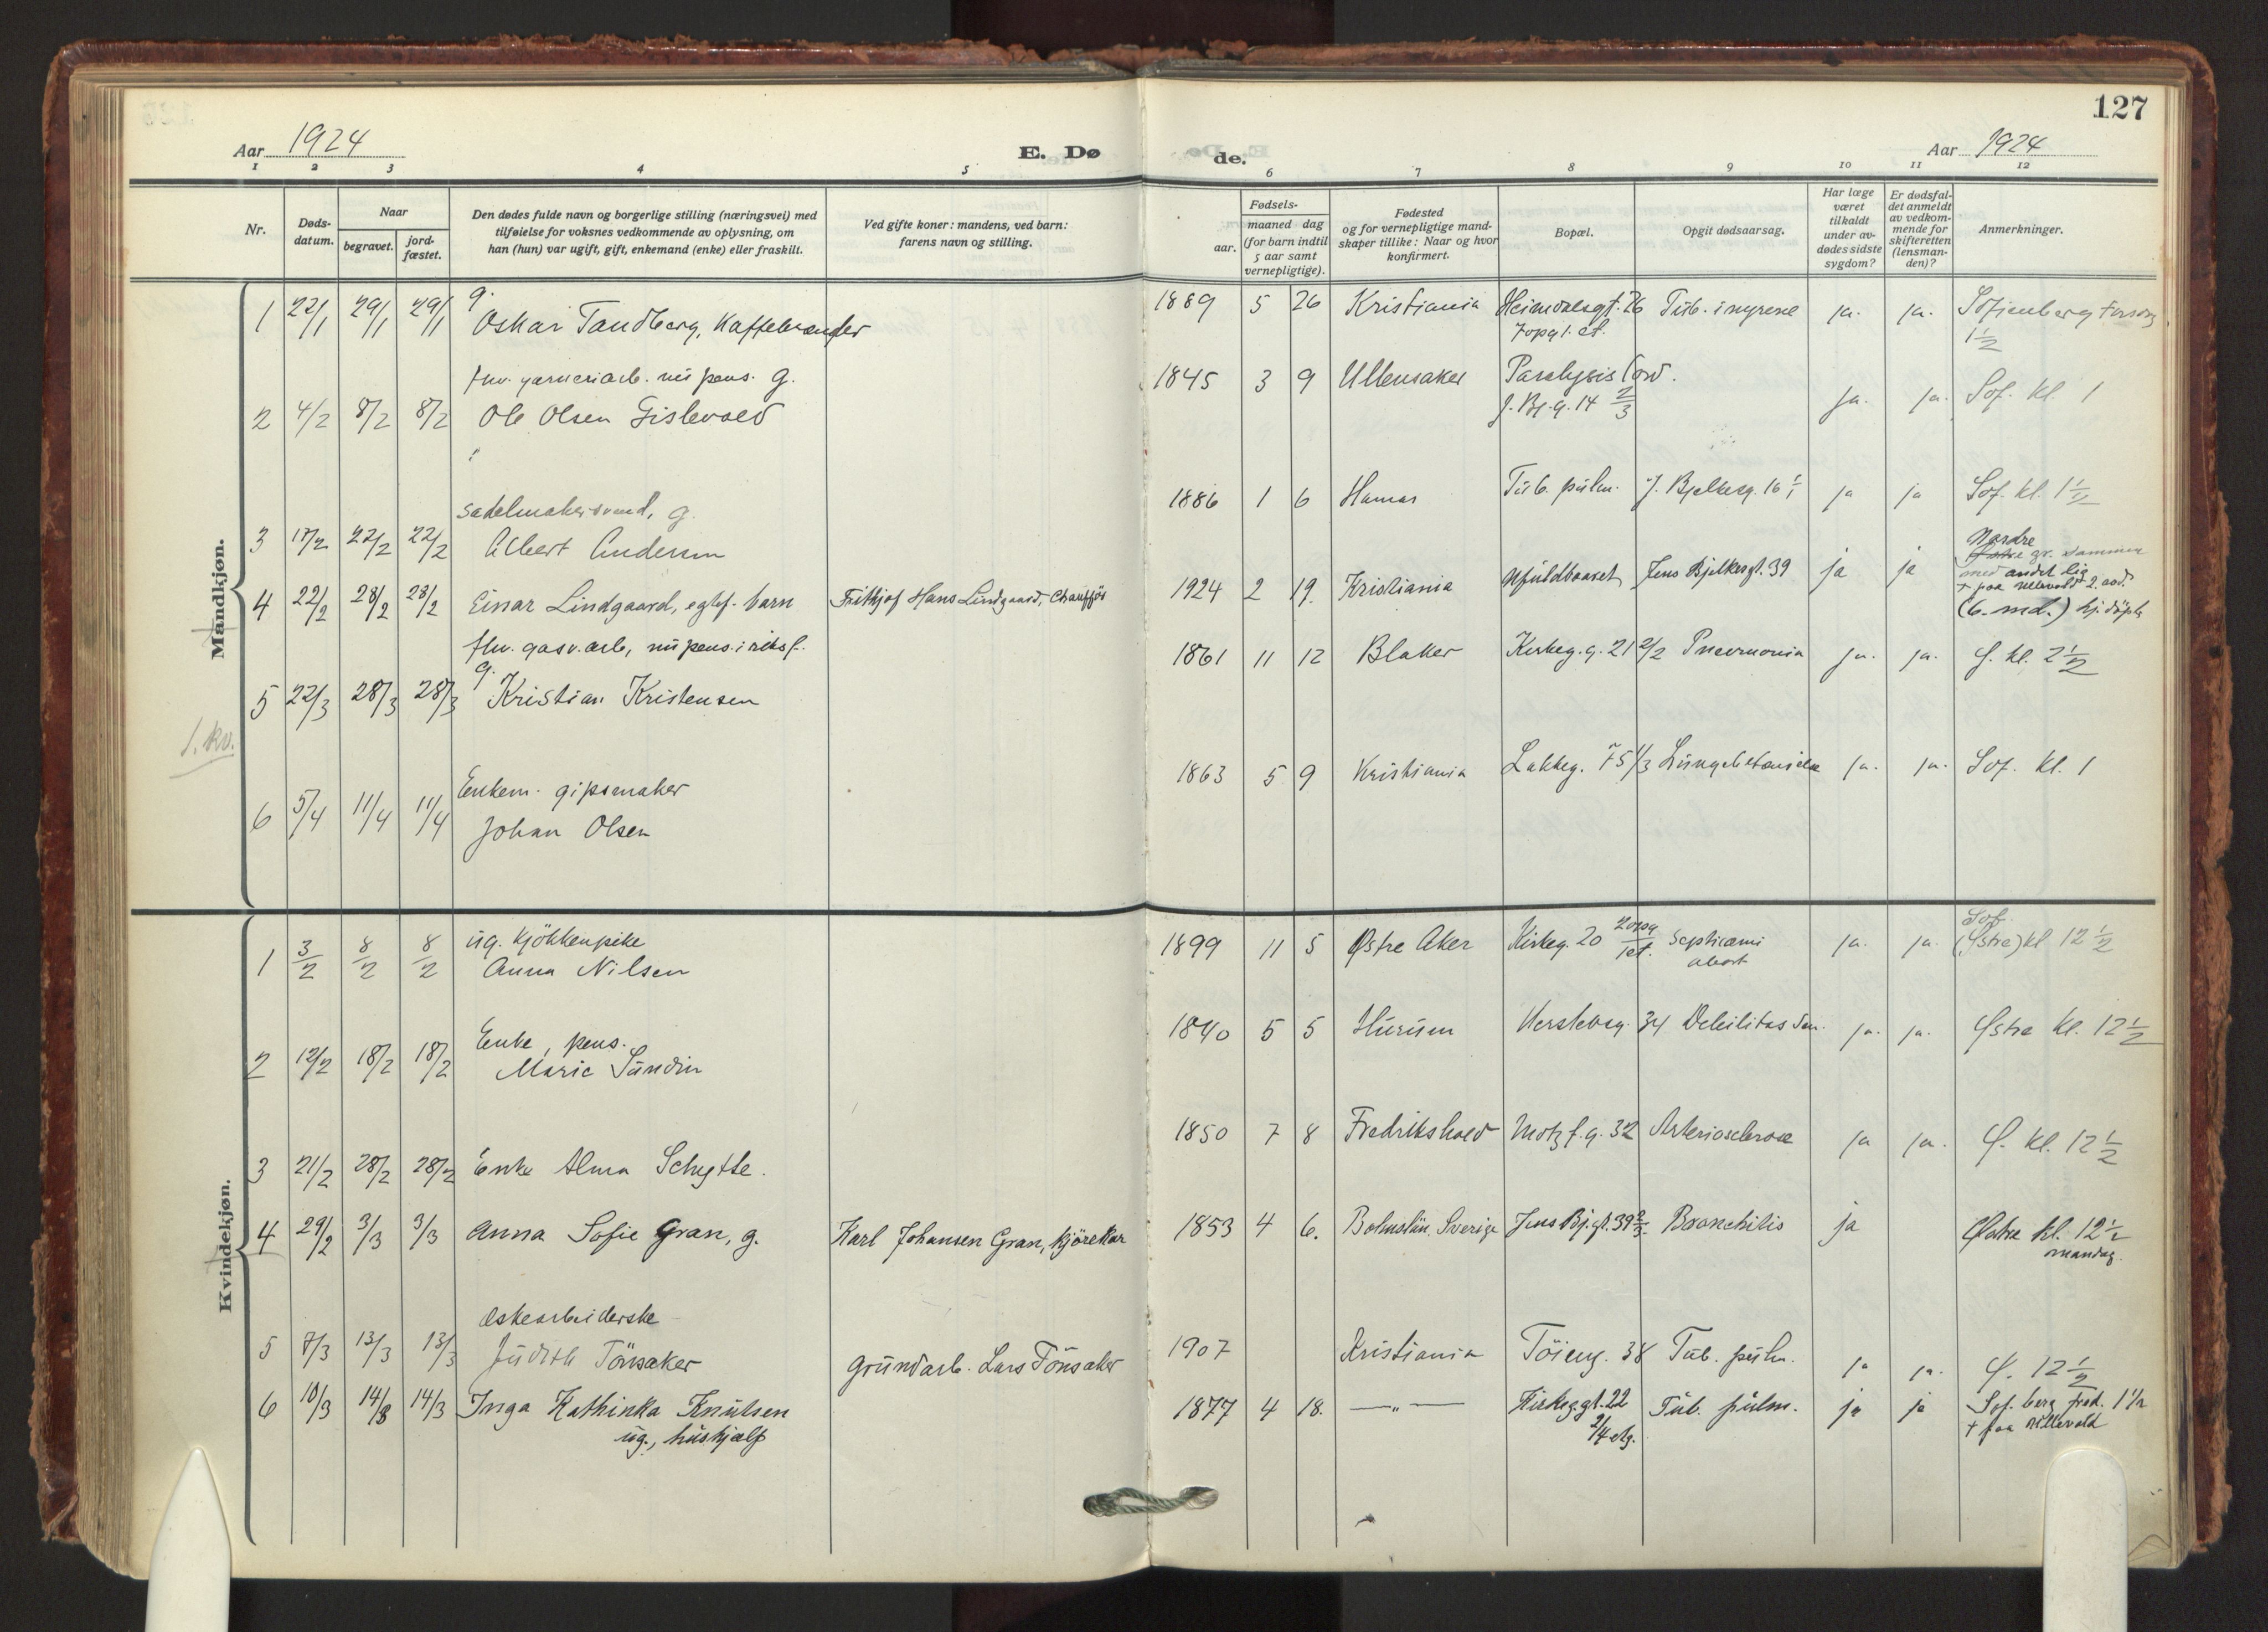 127
Aar 1924
E. Dø
de.
Aar 1924
1 2 3 4 5 6 7 8 9 10 11 12
Nr.
Døds-
datum.
Naar
begravet.
jord-
fæstet.
Den dødes fulde navn og borgerlige stilling (næringsvei) med
tilføielse for voksnes vedkommende av oplysning, om
han (hun) var ugift, gift, enkemand (enke) eller fraskilt.
Ved gifte koner: mandens, ved barn:
farens navn og stilling.
Fødsels-
aar.
maaned dag
(for barn indtil
5 aar samt
vernepligtige).
Fødested
og for vernepligtige mand-
skaper tillike: Naar og hvor
konfirmert.
Bopæl.
Opgit dødsaarsag.
Har læge
været
tilkaldt
under av-
dødes sidste
sygdom?
Er dødsfal-
det anmeldt
av vedkom-
mende for
skifteretten
(lensman-
den)?
Anmerkninger.
Mandkjøn.
1 22/1 29/1 29/1 g. Oskar Tandberg, Kaffebrander 1889 5 26 Kristiania Heimdalsgt. 26 Tub. i nyrene ja. ja. Sofienberg
7 opg 1. et. 1 1/2
fhv. garveriarb. nu pens. g. 1845 3 9 Ullensaker Paralysis Cord.
2 4/2 8/2 8/2 Ole Olsen Gislevold J. Bj. g. 14 2/3 ja. ja. Sof. kl. 1
sadelmakersvend, g. 1886 1 6 Hamar Tub. pulm. J. Bjelkesg. 16 1/1 ja ja Sof. kl. 1 1/2
3 17/2 22/2 22/2 Albert Andersen
4 22/2 28/2 28/2 Einar Lindgaard, egtef. barn Frithjof Hans Lindgaard, Chauffør 1924 2 19. Kristiania Ufuldbaaret Jens Bjelkesgt. 39 ja ja Nordre
Østre gr. sammen
med andet lig
+ paa Ullevold 2. avd.
(6. md.) hj. døpt
fhv. gasv. arb, nu pens. i riksf. 1861 11 12 Blaker Kirkeg. g. 21 2/2 Pneumonia ja. ja. Ø. kl. 2 1/2
g.
5 22/3 28/3 28/3 Kristian Kristensen
1. kv.
Enkem. gipsmaker 1863 5 9 Kristiania Lakkeg. 75 1/3 Lungebetændelse ja. ja. Sof. kl. 1
6 5/4 11/4 11/4 Johan Olsen
Kvindekjøn.
ug. kjøkkenpike 1899 11 5 Østre Aker Kirkeg. 20 2 opg 1 et. Septicæmi ja. ja. Sof. (Østre) kl 12 1/2
abort
1 3/2 8/2 8/2 Anna Nilsen
Enke, pens. 1840 5 5 Hurum Herslebsg. 34 Debilitas sen. ja. ja. Østre kl. 12 1/2
2 12/2 18/2 18/2 Marie Sundin
3 21/2 28/2 28/2 Enke Alma Schytte. 1850 7 8 Fredrikshald Motzf. g. 32 Arteriosclerose ja ja. Ø. kl. 12 1/2
4 29/2 3/3 3/3 Anna Sofie Gran, g. Karl Johansen Gran, kjørekar 1853 4 6. Bohuslän, Sverige Jens Bj. gt. 39 2/3. Bronchitis ja Østre kl. 12 1/2
mandag.
æskearbeiderske
5 7/3 13/3 13/3 Judith Tönsaker grundarb. Lars Tönsaker 1907 Kristiania Töieng. 38 Tub. pulm. ja ja. Ø. 12 1/2
6 10/3 14/3 14/3 Inga Kathinka Knutsen 1877 4 18. —"— Kirkeg.gt. 22 Tub. pulm. ja ja Sof. berg 1 1/2
ug., hushjælp 2/4 etg. + paa Ullevold